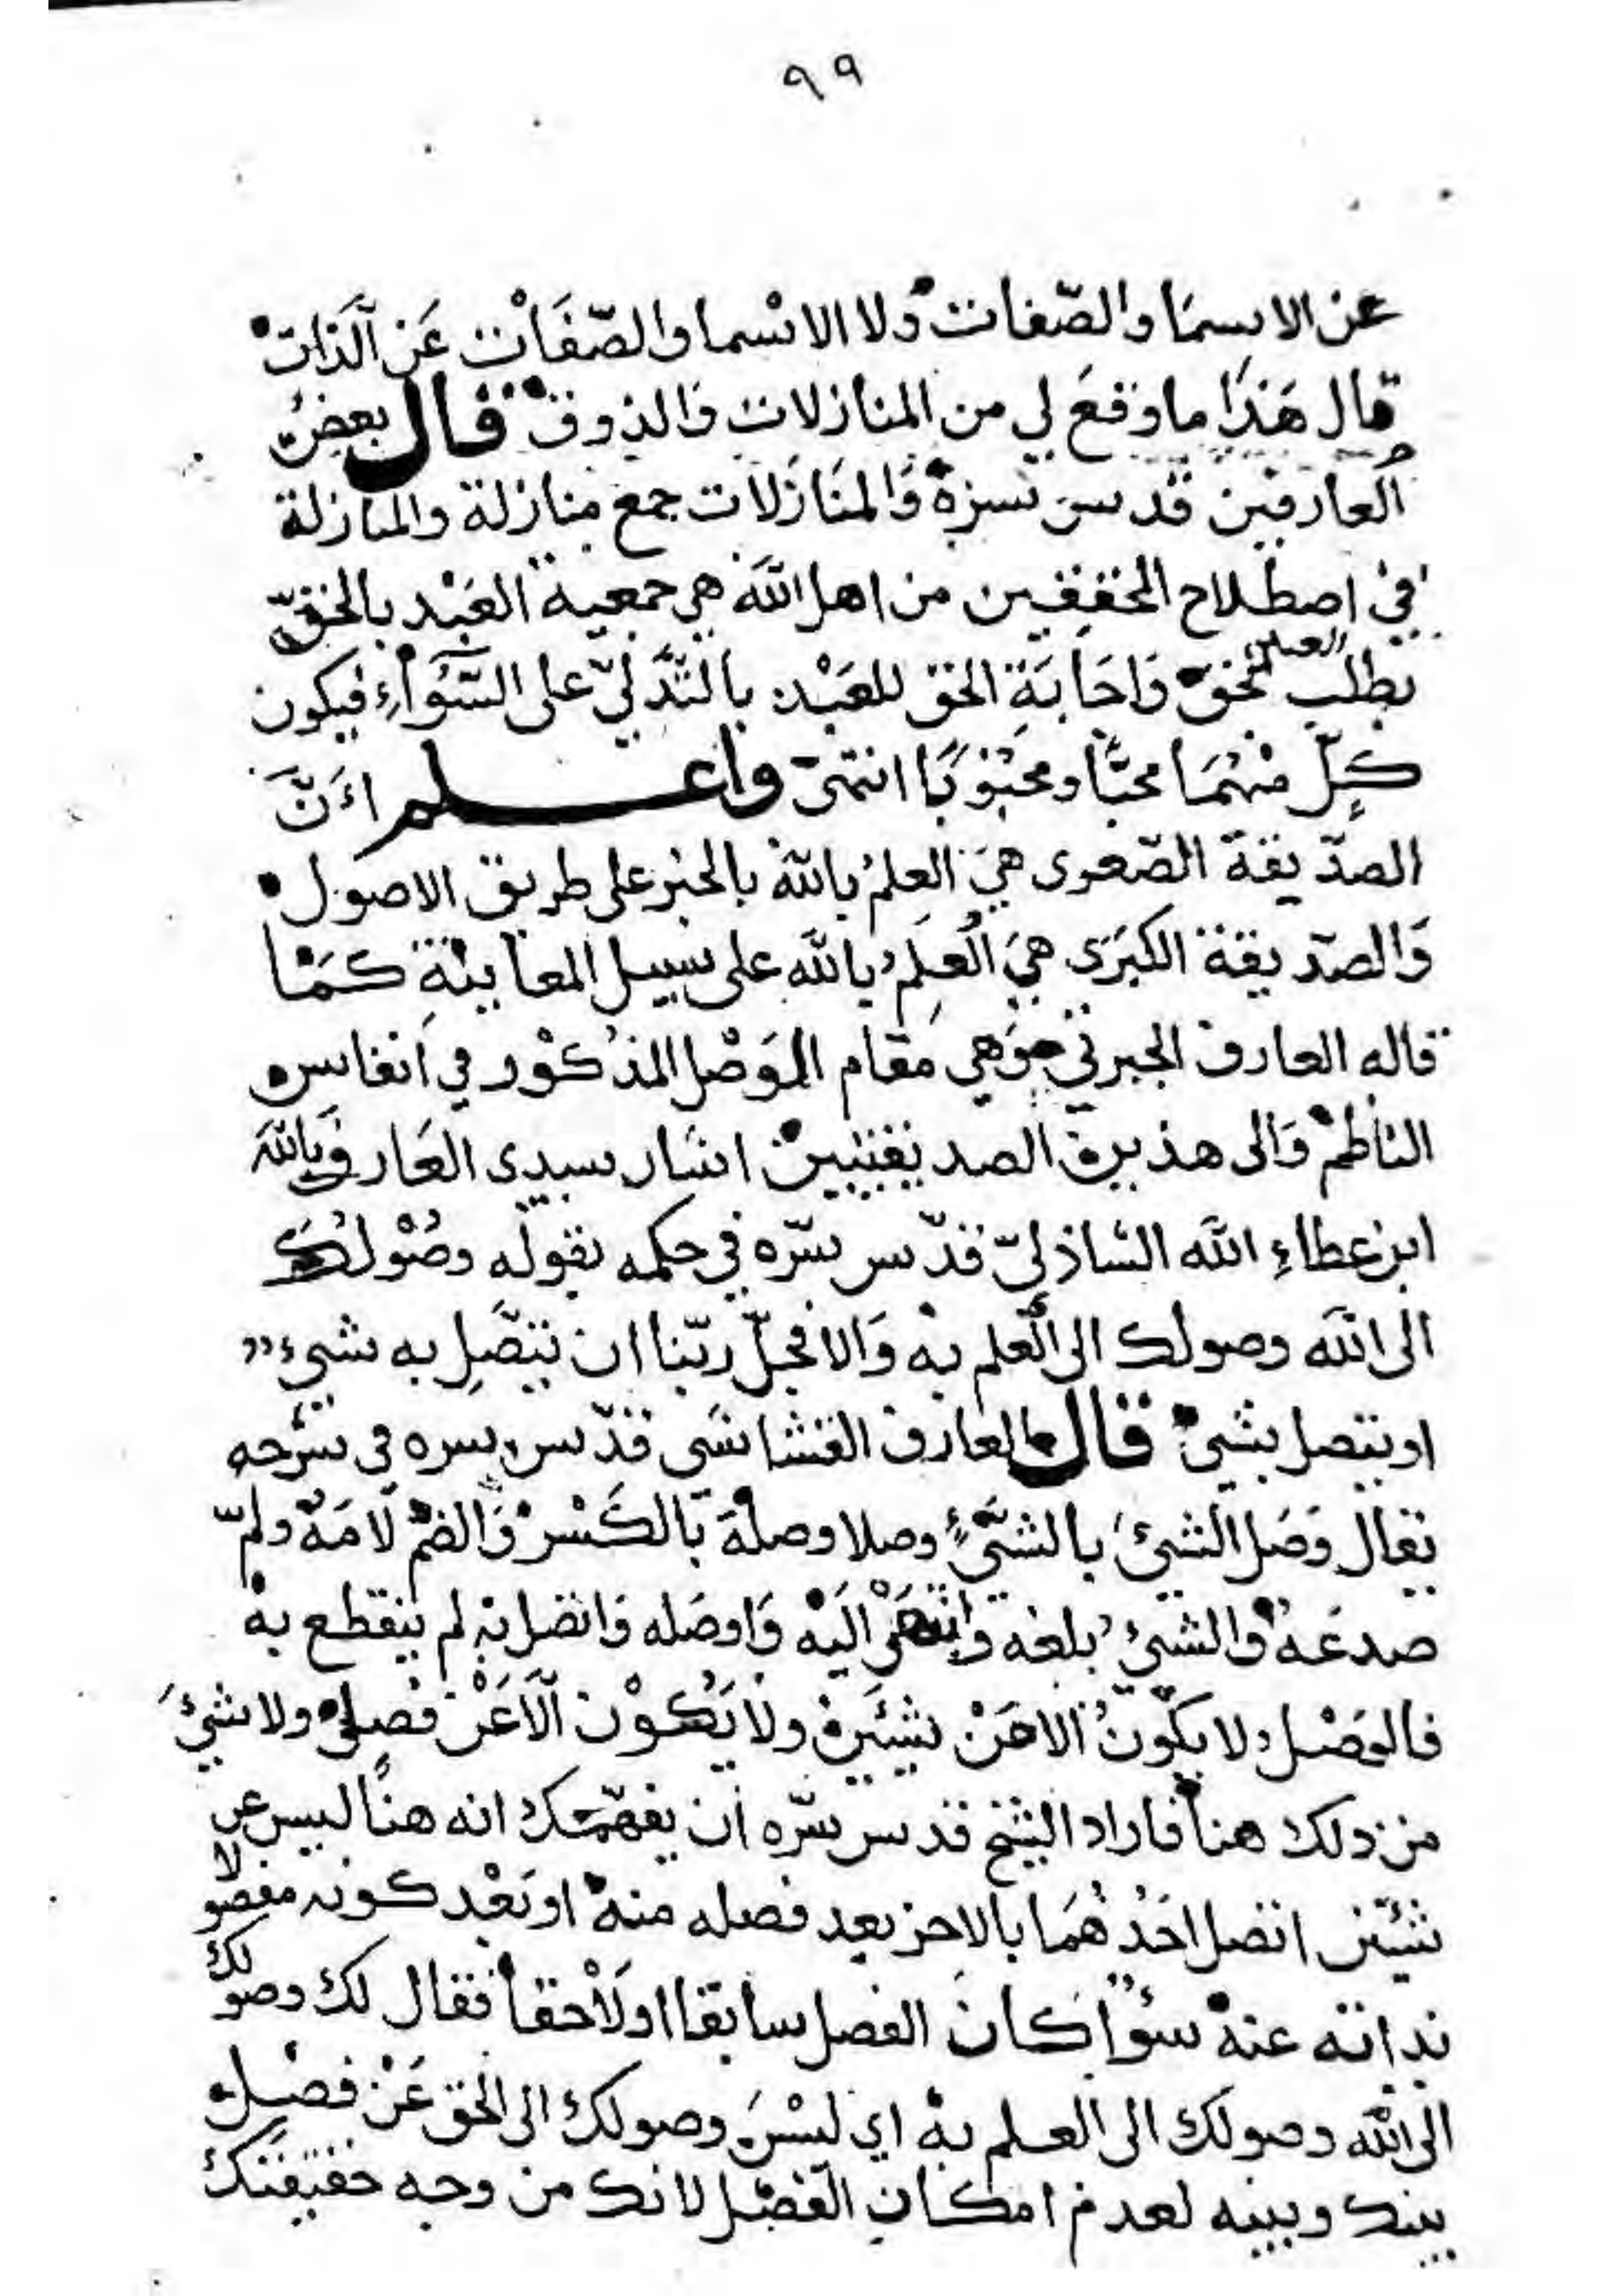 ٩٩
عن الاسما والصّفات ولا الاسما والصّفات عن الذات
قال هذا ما وقع لي من المنازلات والذوق قال بعض
العارفين قدس سره والمنازلات جمع منازلة والمنازلة
في اصطلاح المحققين من اهل الله هي جمعية العبد بالحق
بطلب العبد للحق واجابة الحق للعبد بالتدلّي على السّواء فيكون
كلّ منهما محبّا ومحبوبا انتهى واعلم انّ
الصدّيقة الصّغرى هي العلم بالله بالخبر على طريق الاصول
والصدّيقة الكبرى هي العلم بالله على سبيل المعاينة كما
قاله العارف الجبرتي وهي مقام الوصل المذكور في انفاس
الناظم والى هذين الصديقتين اشار سيدي العارف بالله
ابن عطاء الله الشاذليّ قدّس سرّه في حكمه بقوله وصولك
الى الله وصولك الى العلم به والا فجلّ ربّنا ان يتّصل به شيء
او يتصل بشيء قال العارف القشاشي قدّس سره في شرحه
يقال وصل الشيء بالشيء وصلا وصلة بالكسر والضم لامه ولمّ
صدعه والشيء بلغه وانتهى اليه واوصله واتصل به لم ينقطع به
فالوصل لا يكون الا عن شيئين ولا يكون الا عن فصل ولا شيء
من ذلك هنا فاراد الشيخ قدس سرّه ان يفهّمك انه هنا ليس عن
شيئين اتصل احدهما بالاخر بعد فصله منه او بعد كونه مفصولا
بذاته عنه سواء كان الفصل سابقا او لاحقا فقال لك وصولك
الى الله وصولك الى العلم به اي ليس وصولك الى الحق عن فصل
بينك وبينه لعدم امكان الفصل لانك من وجه حقيقتك